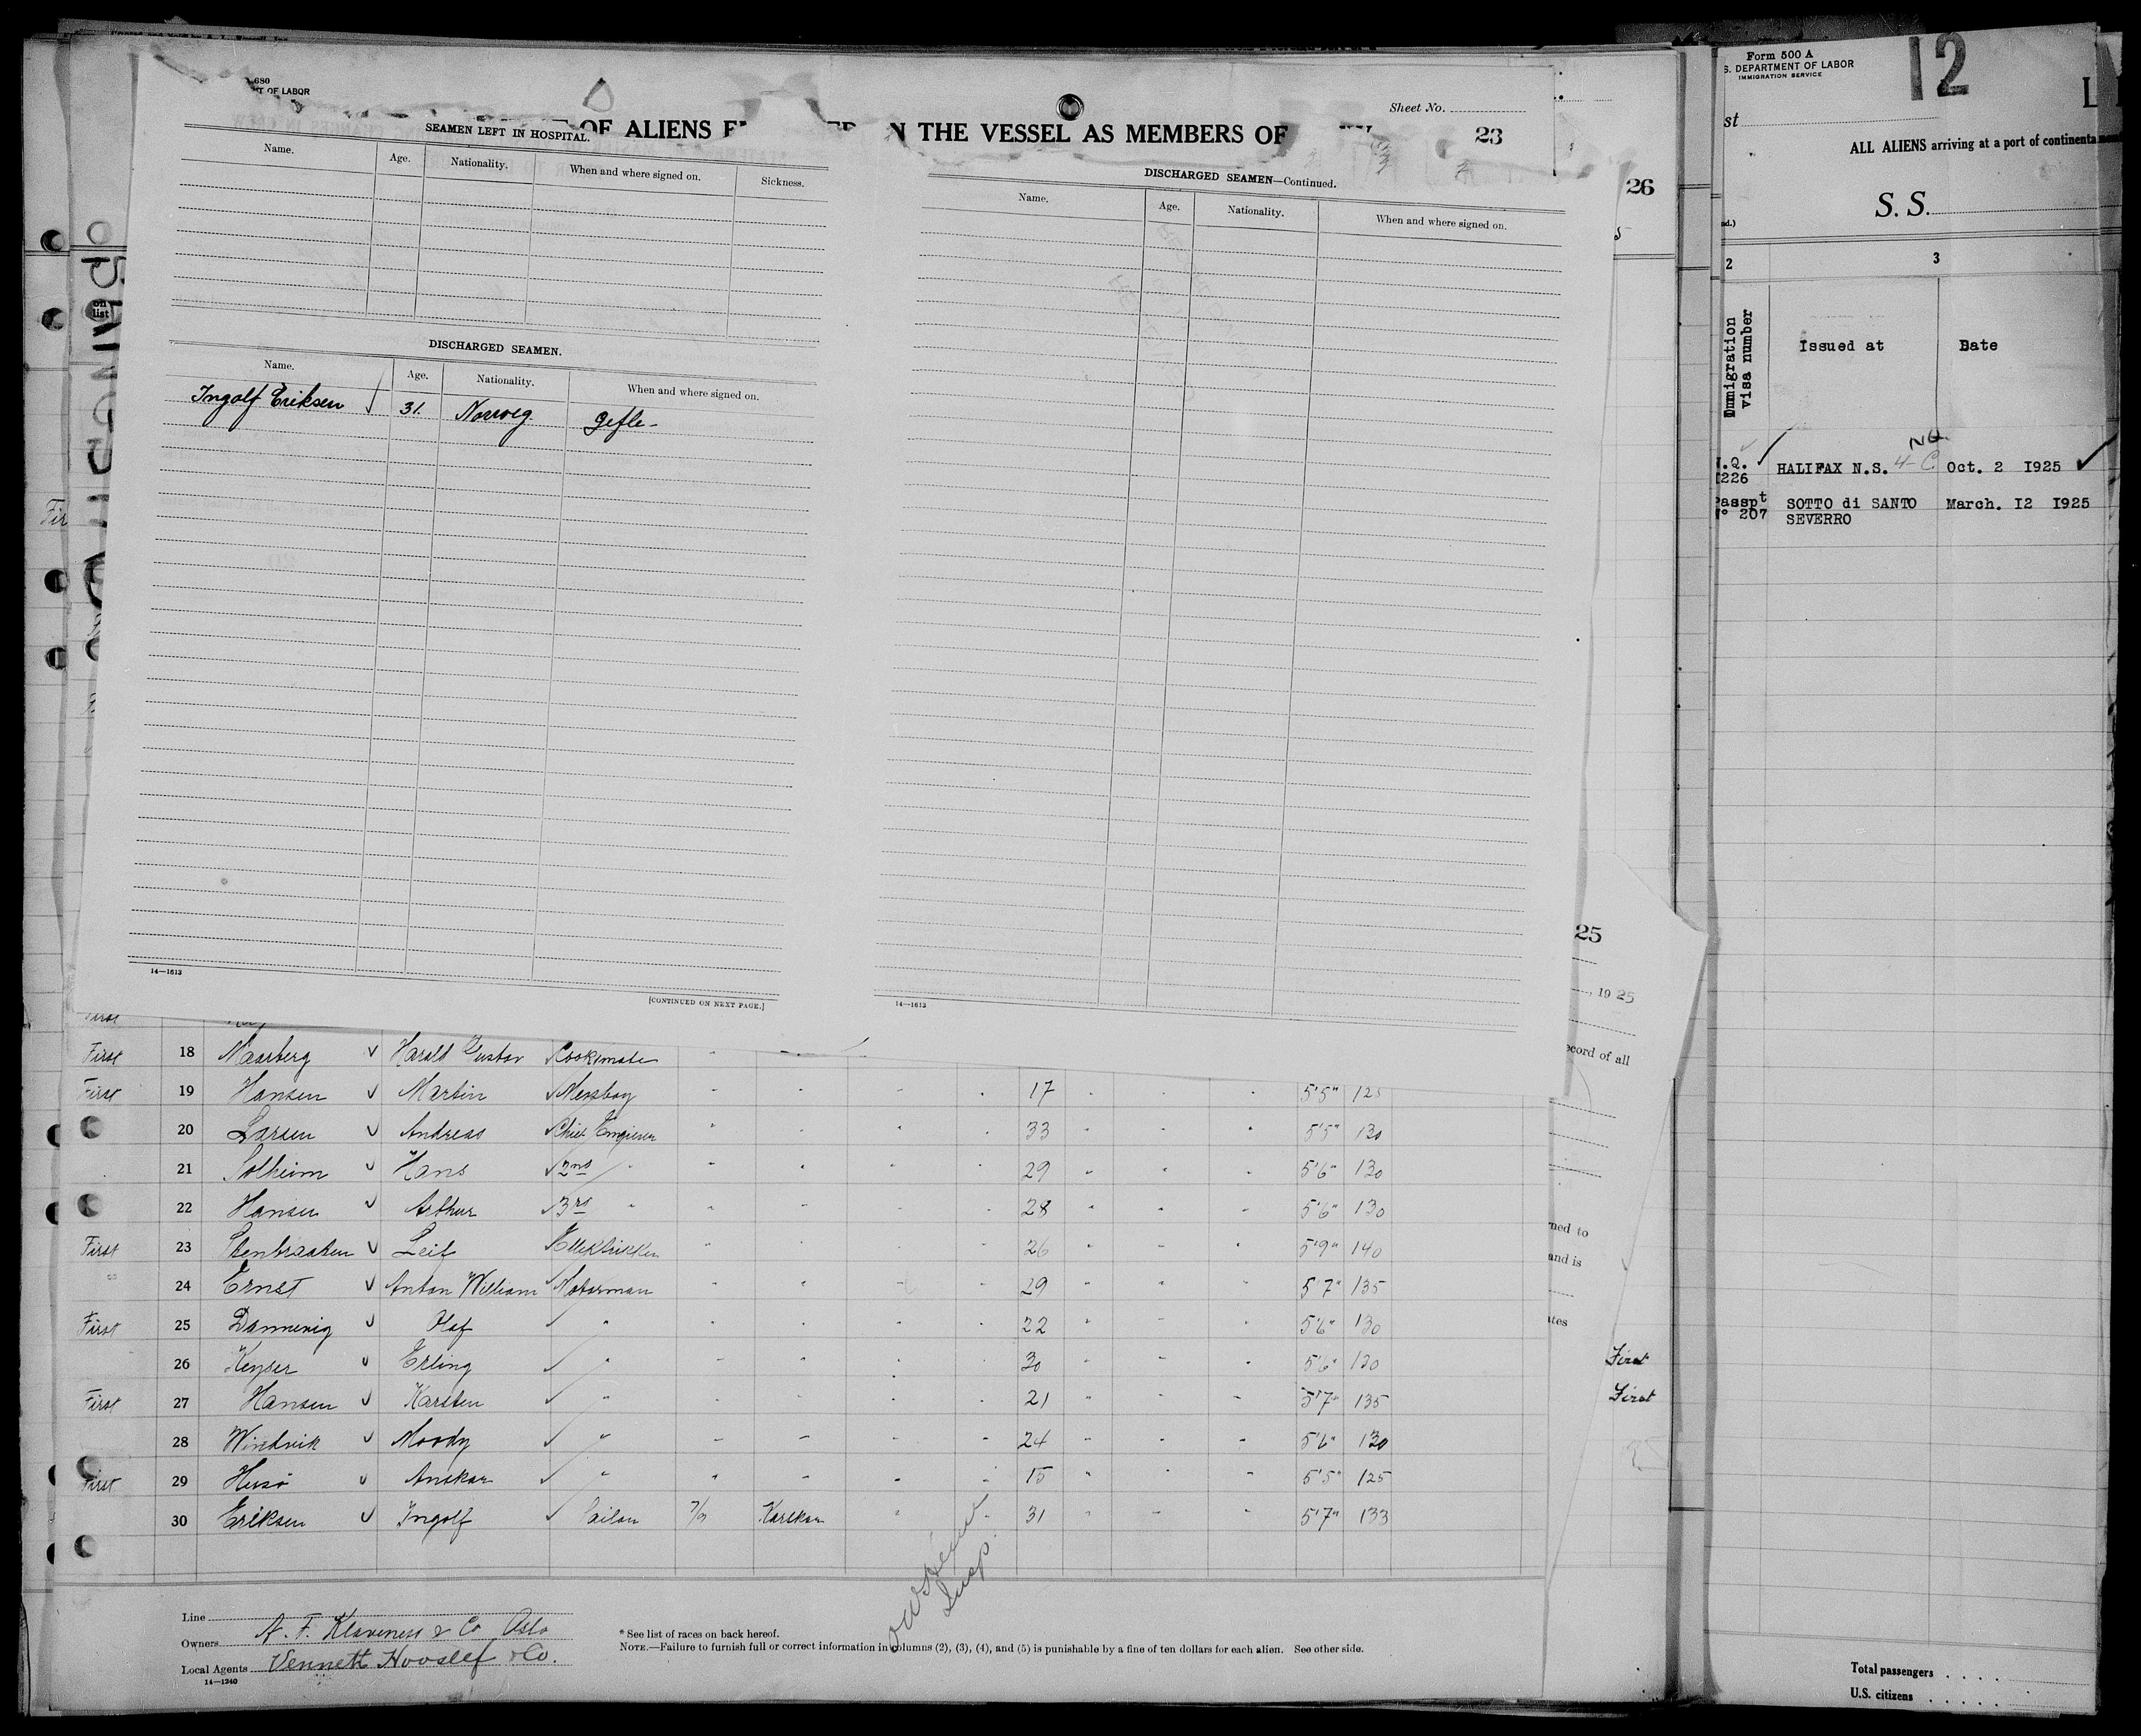 680
T OF LABOR
Sheet No.
OF ALIENS E
N THE VESSEL AS MEMBERS OF
23
SEAMEN LEFT IN HOSPITAL.
Name. Age. Nationality. When and where signed on. Sickness.
DISCHARGED SEAMEN.
Name. Age. Nationality. When and where signed on.
Ingolf Eriksen 31. Norweg. Gefle-
14—1613
[CONTINUED ON NEXT PAGE.]
DISCHARGED SEAMEN—Continued.
Name. Age. Nationality. When and where signed on.
14—1613
on
list
First
First 18 Naarberg Harald Gustav Cooksmate
First 19 Hansen Martin Messboy 17 5'5" 125
20 Larsen Andreas Chief Engineer 33 5'5" 130
21 Solheim Hans 2nd " 29 5'6" 130
22 Hansen Arthur 3rd " 28 5'6" 130
First 23 Stenbraaten Leif Ellektrikker 26 5'9" 140
24 Ernst Anton William Motorman 29 5'7" 135
First 25 Dannevig Olaf " 22 5'6" 130
26 Keyser Erling " 30 5'6" 130
First 27 Hansen Karsten " 21 5'7" 135
28 Windvik Moody " 24 5'6" 130
First 29 Husø Anskar " 15 5'5" 125
30 Eriksen Ingolf Sailor 7/9 31 5'7" 133
Line
Owners A. F. Klaveness & Co Oslo
Local Agents Vennett Hvoslef & Co.
14—1240
* See list of races on back hereof.
NOTE.—Failure to furnish full or correct information in columns (2), (3), (4), and (5) is punishable by a fine of ten dollars for each alien. See other side.
Insp.
26
25
, 1925
ecord of all
ned to
and is
ates
First
First
Form 500 A
S. DEPARTMENT OF LABOR
IMMIGRATION SERVICE
12
L
st
ALL ALIENS arriving at a port of continenta
S. S.
2 3
Immigration visa number
Issued at Date
N.Q. 1226 HALIFAX N.S. 4-C. NQ Oct. 2 I925
Passpt N° 207 SOTTO di SANTO SEVERRO March. I2 I925
Total passengers
U.S. citizens